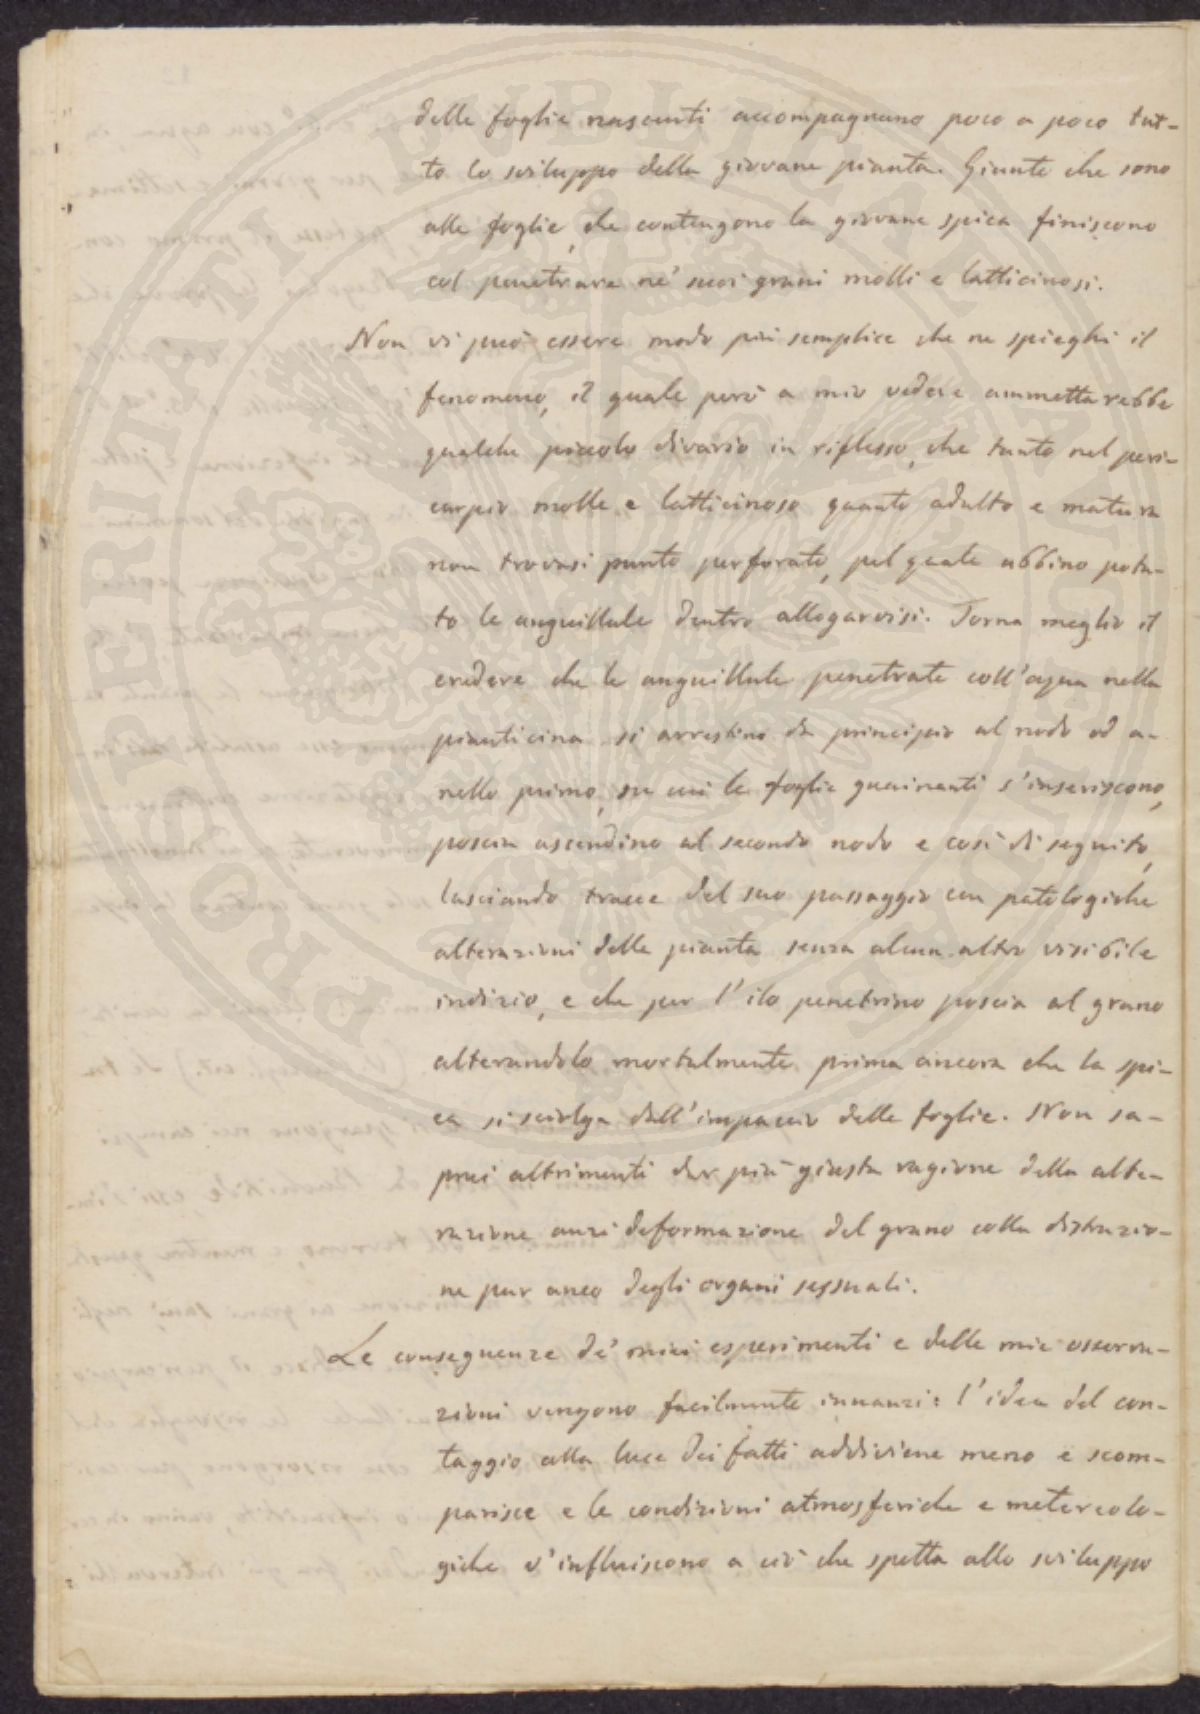 delle foglie nascenti accompagnano poco a poco tut-
to lo sviluppo della giovane pianta. Giunte che sono
alle foglie, che contengono la giovane spica finiscono
col penetrare ne' suoi grani molli e latticinosi.
Non vi può essere modo più semplice che ne spieghi il
fenomeno, il quale però a mio vedere ammettarebbe
qualche piccolo divario in riflesso, che tanto nel peri-
carpio molle e latticinoso quanto adulto e maturo
non trovasi punto perforato, pel quale abbino potu-
to le anguillule dentro allogarvisi. Torna meglio il
credere che le anguillule penetrate coll'acqua nella
pianticina si arrestino da principio al nodo od a-
nello primo, su cui le foglie guainanti s'inseriscono,
poscia ascendino al secondo nodo e così di seguito,
lasciando tracce del suo passaggio con patologiche
alterazioni della pianta senza alcun altro visibile
indizio, e che per l'ilo penetrino poscia al grano
alterandolo mortalmente prima ancora che la spi-
ca si sciolga dall'impaccio delle foglie. Non sa-
prei altrimenti dar più giusta ragione della alte-
razione anzi deformazione del grano colla distruzio-
ne pur anco degli organi sessuali.
Le conseguenze de' miei esperimenti e delle mie osserva-
zioni vengono facilmente innanzi: l'idea del con-
taggio alla luce dei fatti addiviene meno e scom-
parisce e le condizioni atmosferiche e metereolo-
giche v'influiscono a ciò che spetta allo sviluppo
PROSPERITATI PUBLICAE